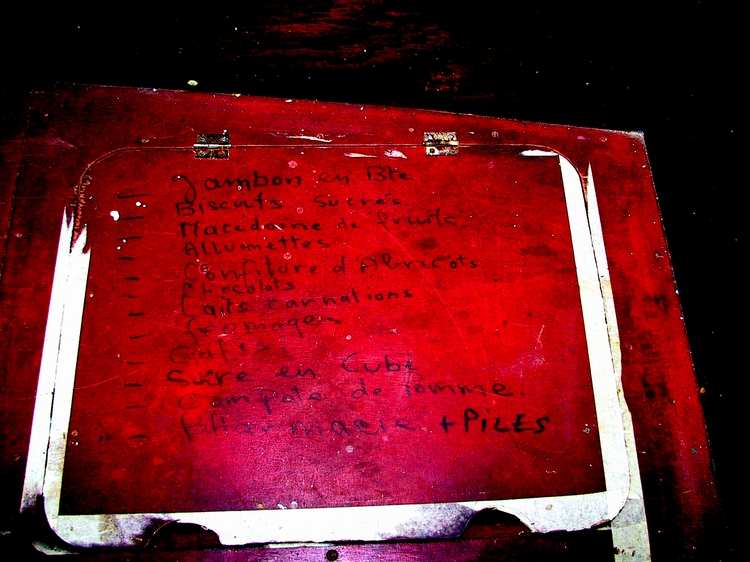 Jambon en Bte
Biscuits Sucrés
Macedoine de fruits.
Allumettes
Confiture d'Abricots
Chocolats
Laits carnations
fromages
Cafés
Sucre en Cube
Compote de Pomme.
Pharmacie + PILES